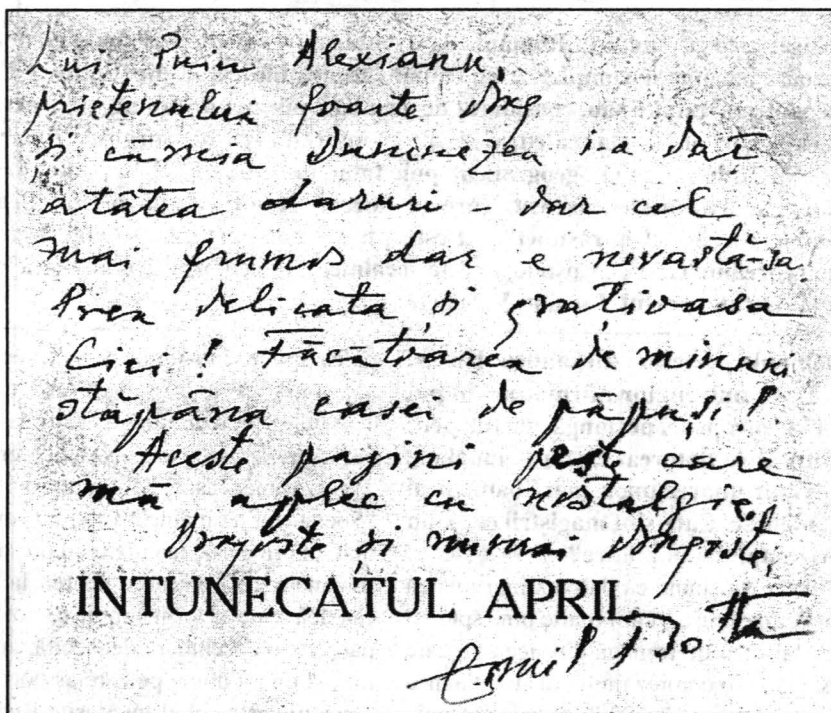 Lui Puiu Alexianu,
prietenului foarte drag
și căruia Dumnezeu i-a dat
atâtea daruri – dar cel
mai frumos dar e nevastă-sa.
Prea delicata și grațioasa
Cici! Făcătoarea de minuni
stăpâna casei de păpuși!
Aceste pagini peste care
mă aplec cu nostalgie!
Dragoste și numai dragoste,
INTUNECATUL APRIL
Emil Botta